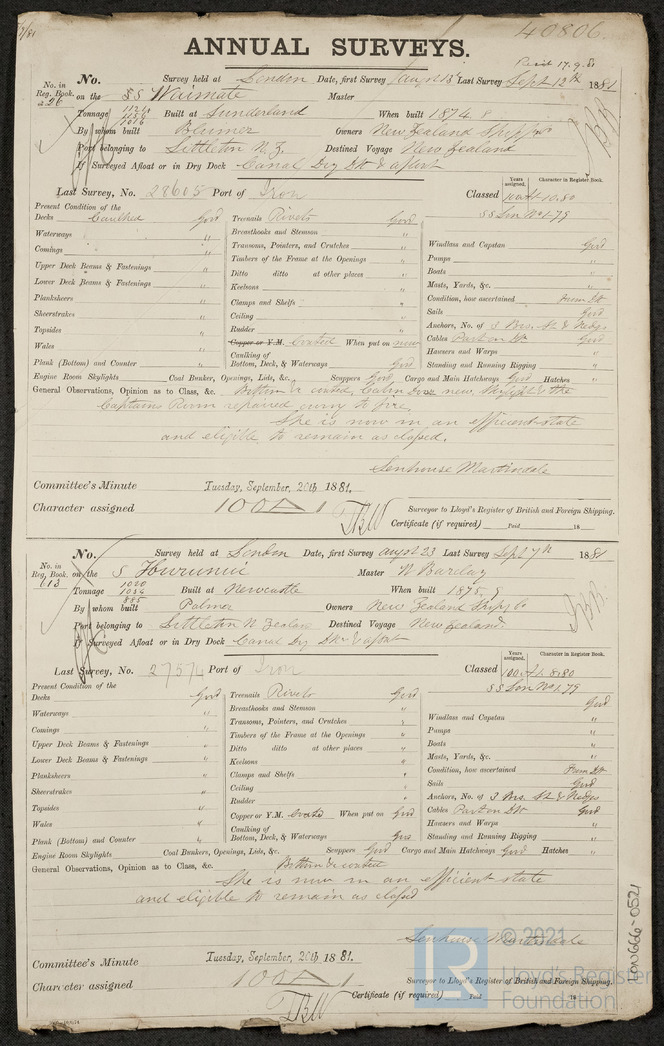 40806.
ANNUAL SURVEYS.
17.9.81
No. in Reg. Book. 226 No. Survey held at London Date, first Survey Augst 13th Last Survey Septr 12th 1881
on the SS Waimate Master
Tonnage 1124 1156 1016 Built at Sunderland When built 1874 8
By whom built Blumer Owners New Zealand Shippg Co
Port belonging to Littleton N.Z. Destined Voyage New Zealand
If Surveyed Afloat or in Dry Dock Canal Dry Dk & afloat
Last Survey, No. 28605 Port of Iron Classed Years assigned. Character in Register Book.
100A1 10.80
SS Lon No 1.79
Present Condition of the
Decks Caulked Good
Waterways "
Comings "
Upper Deck Beams & Fastenings "
Lower Deck Beams & Fastenings "
Planksheers "
Sheerstrakes "
Topsides "
Wales "
Plank (Bottom) and Counter "
Treenails Rivets Good
Breasthooks and Stemson "
Transoms, Pointers, and Crutches "
Timbers of the Frame at the Openings "
Ditto ditto at other places "
Keelsons "
Clamps and Shelfs "
Ceiling "
Rudder "
Copper or Y.M. Coated When put on now
Caulking of Bottom, Deck, & Waterways Good
Windlass and Capstan Good
Pumps "
Boats "
Masts, Yards, &c. "
Condition, how ascertained From Dk
Sails Good
Anchors, No. of 3 Brs. St. & Kedge
Cables Part on Dk Good
Hausers and Warps "
Standing and Running Rigging "
Engine Room Skylights Coal Bunker, Openings, Lids, &c. Scuppers Good Cargo and Main Hatchways Good Hatches "
General Observations, Opinion as to Class, &c. Bottom re coated, Cabin Door new, Skylight & the
Captains Room repaired owing to fire.
She is now in an efficient state
and eligible to remain as classed.
Senhouse Martindale
Committee's Minute Tuesday, September, 20th 1881.
Character assigned 100A1
Surveyor to Lloyd's Register of British and Foreign Shipping.
Certificate (if required) Paid 18
No. in Reg. Book. 613 No. Survey held at London Date, first Survey Augst 23 Last Survey Septr 7th 1881
on the S Hurunui Master W Barclay
Tonnage 1020 1054 885 Built at Newcastle When built 1875. 9
By whom built Palmer Owners New Zealand Shipg Co
Port belonging to Littleton N Zealand Destined Voyage New Zealand.
If Surveyed Afloat or in Dry Dock Canal Dry Dk & afloat
Last Survey, No. 27574 Port of Iron Classed Years assigned. Character in Register Book.
100A1 8.80
SS Lon No 1.79
Present Condition of the
Decks Good
Waterways "
Comings "
Upper Deck Beams & Fastenings "
Lower Deck Beams & Fastenings "
Planksheers "
Sheerstrakes "
Topsides "
Wales "
Plank (Bottom) and Counter "
Treenails Rivets Good
Breasthooks and Stemson "
Transoms, Pointers, and Crutches "
Timbers of the Frame at the Openings "
Ditto ditto at other places "
Keelsons "
Clamps and Shelfs "
Ceiling "
Rudder "
Copper or Y.M. Coated When put on Good
Caulking of Bottom, Deck, & Waterways Good
Good
Windlass and Capstan "
Pumps "
Boats "
Masts, Yards, &c. "
Condition, how ascertained From Dk
Sails Good
Anchors, No. of 3 Brs. St. & Kedge
Cables Part on Dk Good
Hausers and Warps "
Standing and Running Rigging "
Engine Room Skylights Coal Bunkers, Openings, Lids, &c. Scuppers Good Cargo and Main Hatchways Good Hatches "
General Observations, Opinion as to Class, &c. Bottom re coated
She is now in an efficient state
and eligible to remain as classed
Senhouse Martindale
Committee's Minute Tuesday, September, 20th 1881.
Character assigned 100A1
Surveyor to Lloyd's Register of British and Foreign Shipping.
Certificate (if required) Paid 18
LON666-0521
LR © 2021
Lloyd's Register
Foundation